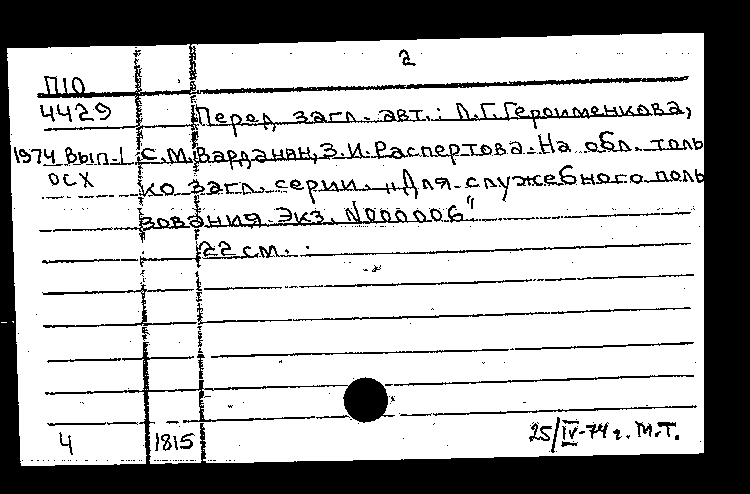 2
П10
4429 Перед загл. авт.: Л.Г.Героименкова,
1974 Вып.1 С.М.Варданян, З.И.Распертова. На обл. толь
ОСХ ко загл. серии. „Для служебного поль
зования. Экз. N000006"
22 см.
4 1815 25/IV-74 г. М.Т.